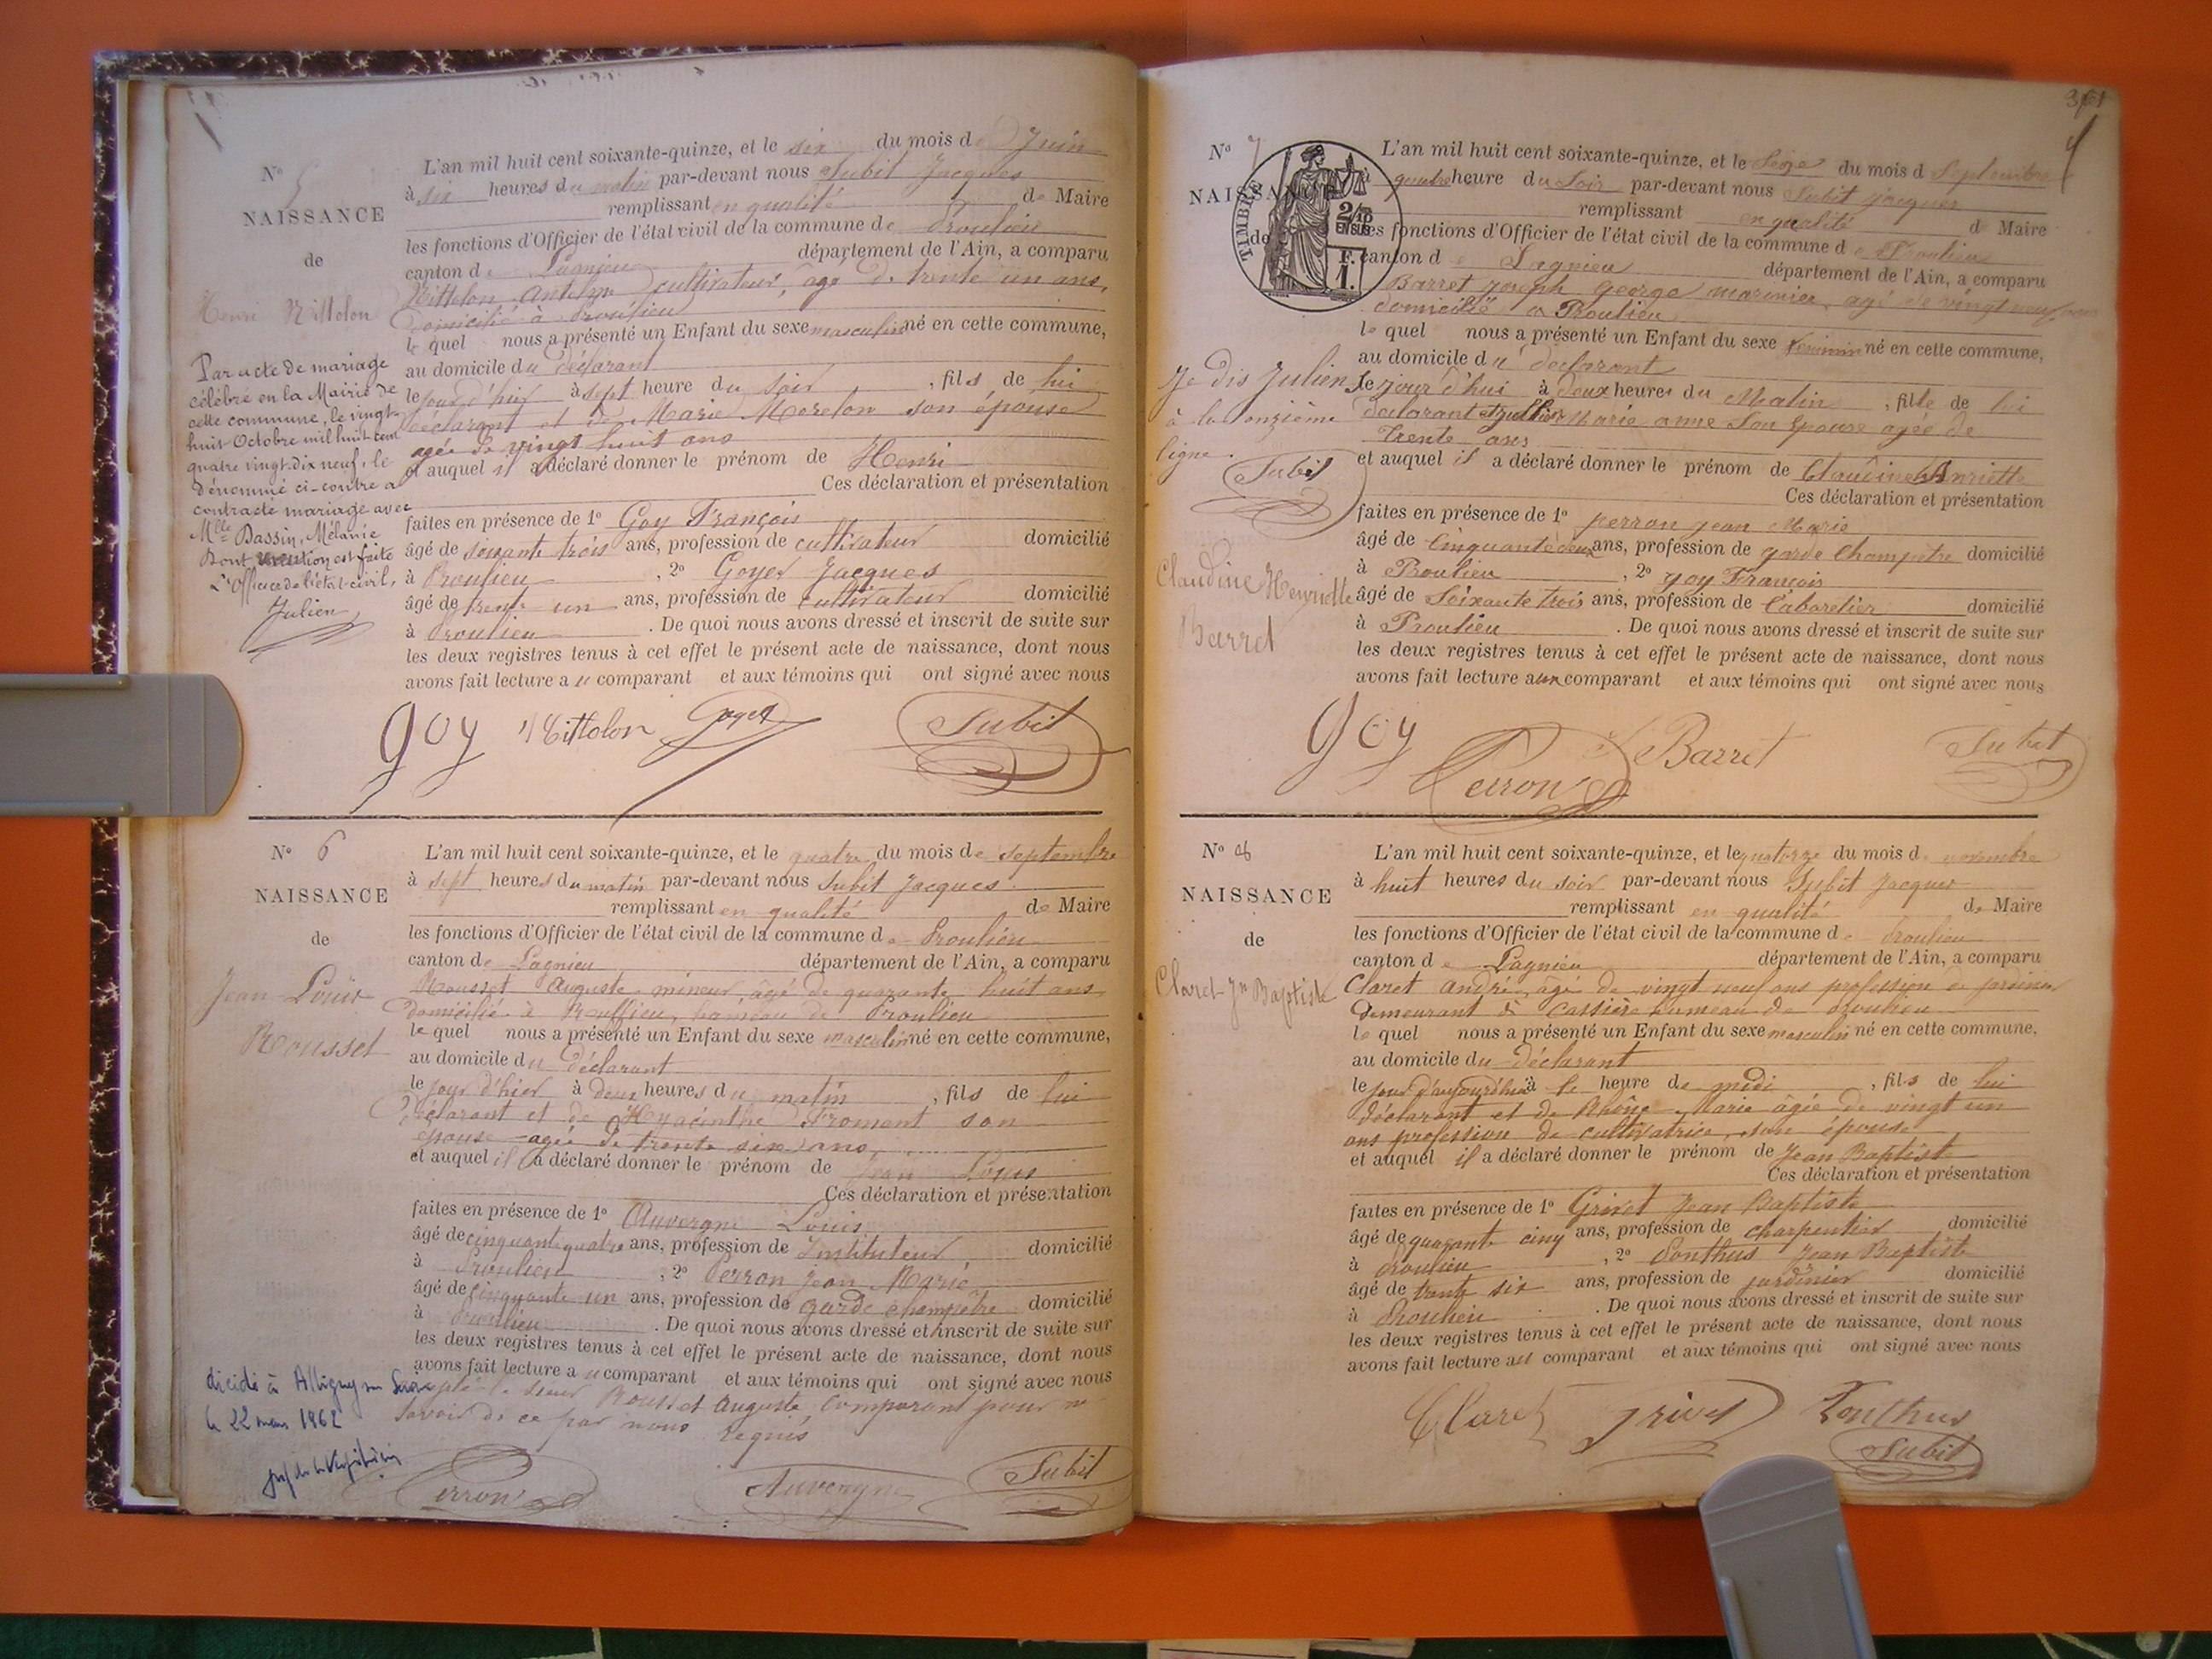 N° 5
NAISSANCE
de
Henri Nittolon
Par acte de mariage
célébré en la Mairie de
cette commune, le vingt-
huit Octobre mil huit cent
quatre vingt-dix neuf, le
dénommé ci-contre a
contracté mariage avec
Mlle Bassin, Mélanie
Dont mention est faite
L'Officier de l'état-civil,
Julien
L'an mil huit cent soixante-quinze, et le six du mois de Juin
à six heures du matin par-devant nous Subit Jacques
remplissant en qualité de Maire
les fonctions d'Officier de l'état civil de la commune de Proulieu
canton de Lagnieu département de l'Ain, a comparu
Nittolon Antelme cultivateur, âgé de trente un ans,
domicilié à Proulieu
le quel nous a présenté un Enfant du sexe masculin né en cette commune,
au domicile du déclarant
le jour d'hier à sept heure du soir, fils de lui
déclarant et de Marie Morelon son épouse
agée de vingt huit ans
et auquel il a déclaré donner le prénom de Henri
Ces déclaration et présentation
faites en présence de 1° Goy François
âgé de soixante trois ans, profession de cultivateur domicilié
à Proulieu, 2° Goyer Jacques
âgé de trente un ans, profession de cultivateur domicilié
à Proulieu. De quoi nous avons dressé et inscrit de suite sur
les deux registres tenus à cet effet le présent acte de naissance, dont nous
avons fait lecture au comparant et aux témoins qui ont signé avec nous
goy Nittolon goyer Subit
N° 6
NAISSANCE
de
Jean Louis
Rousset
L'an mil huit cent soixante-quinze, et le quatre du mois de septembre
à sept heures du matin par-devant nous Subit Jacques
remplissant en qualité de Maire
les fonctions d'Officier de l'état civil de la commune de Proulieu
canton de Lagnieu département de l'Ain, a comparu
Rousset Auguste mineur, âgé de quarante huit ans
domicilié à Ruffieu, hameau de Proulieu
le quel nous a présenté un Enfant du sexe masculin né en cette commune,
au domicile du déclarant
le jour d'hier à deux heures du matin, fils de lui
déclarant et de Hyacinthe Froment son
épouse agée de trente six ans
et auquel il a déclaré donner le prénom de Jean Louis
Ces déclaration et présentation
faites en présence de 1° Auvergne Louis
âgé de cinquante quatre ans, profession de Instituteur domicilié
à Proulieu, 2° Perron Jean Marie
âgé de cinquante un ans, profession de garde champêtre domicilié
à Proulieu. De quoi nous avons dressé et inscrit de suite sur
les deux registres tenus à cet effet le présent acte de naissance, dont nous
avons fait lecture au comparant et aux témoins qui ont signé avec nous
le sieur Rousset Auguste comparant pour ne
savoir de ce par nous requis
décédé à
le 22 mars 1962
Perron Auvergne Subit
361
N° 7
NAISSANCE
de
TIMBRE
2/10 EN SUS
1 F.
Je dis Julien
à la onzième
ligne.
Subit
Claudine Henriette
Barret
L'an mil huit cent soixante-quinze, et le Seize du mois d Septembre
à quatre heure du Soir par-devant nous Subit jacques
remplissant en qualité de Maire
les fonctions d'Officier de l'état civil de la commune de Proulieu
canton de Lagnieu département de l'Ain, a comparu
Barret joseph george marinier, agé de vingt neuf ans
domicilié a Proulieu
le quel nous a présenté un Enfant du sexe feminin né en cette commune,
au domicile du déclarant
le jour d'hui à deux heures du Matin, fille de lui
declarant et Marie anne Son épouse agée de
trente ans
et auquel il a déclaré donner le prénom de Claudine
Ces déclaration et présentation
faites en présence de 1° perron jean Marie
âgé de Cinquante deux ans, profession de garde Champetre domicilié
à Proulieu, 2° goy François
âgé de Soixante trois ans, profession de Cabaretier domicilié
à Proulieu. De quoi nous avons dressé et inscrit de suite sur
les deux registres tenus à cet effet le présent acte de naissance, dont nous
avons fait lecture aux comparant et aux témoins qui ont signé avec nous
goy Perron Barret Subit
N° 8
NAISSANCE
de
Claret Jn Baptiste
L'an mil huit cent soixante-quinze, et le quatorze du mois de novembre
à huit heures du soir par-devant nous Subit Jacques
remplissant en qualité de Maire
les fonctions d'Officier de l'état civil de la commune de Proulieu
canton de Lagnieu département de l'Ain, a comparu
Claret andré, agé de vingt neuf ans profession de jardinier
demeurant à Cassière hameau de proulieu
le quel nous a présenté un Enfant du sexe masculin né en cette commune,
au domicile du déclarant
le jour d'aujourd'hui à le heure de midi, fils de lui
déclarant et de Rhône Marie âgée de vingt un
ans profession de cultivatrice, son épouse
et auquel il a déclaré donner le prénom de Jean Baptiste
Ces déclaration et présentation
faites en présence de 1° Grivet Jean Baptiste
âgé de quarante cinq ans, profession de charpentier domicilié
à Proulieu, 2° Ponthus Jean Baptiste
âgé de trente six ans, profession de jardinier domicilié
à Proulieu. De quoi nous avons dressé et inscrit de suite sur
les deux registres tenus à cet effet le présent acte de naissance, dont nous
avons fait lecture au comparant et aux témoins qui ont signé avec nous
Claret grivet Ponthus
Subit